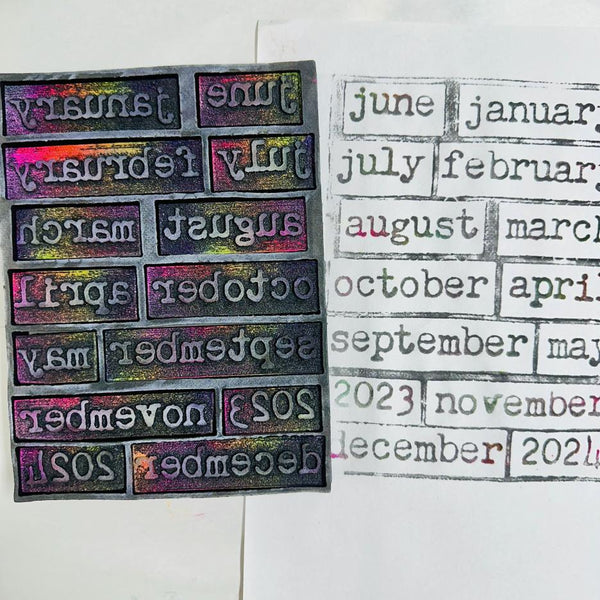 january june
february july
march august
april october
may september
november 2023
2024 december
june january
july february
august march
october april
september may
2023 november
december 2024